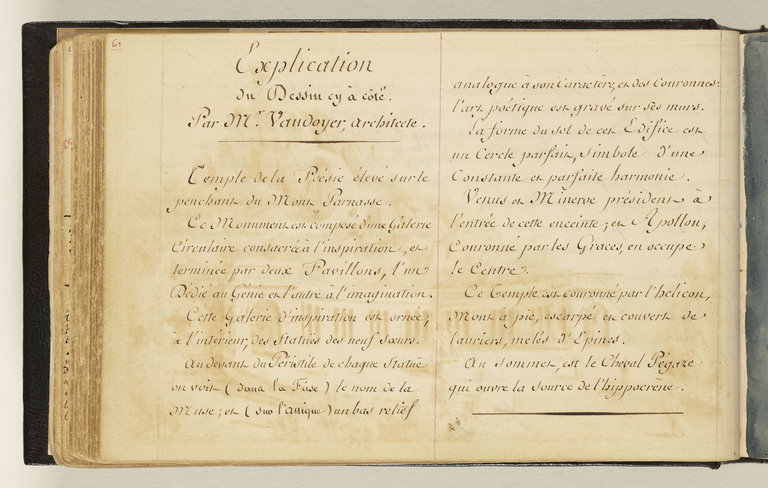 62
Explication
du Dessin cy à côté.
Par Mr. Vaudoyer, architecte.
Temple de la Poésie élevé sur le
penchant du Mont Parnasse.
Ce Monument est composé d'une Galerie
Circulaire consacrée à l'inspiration, et
terminée par deux Pavillons, l'un
Dédié au Génie et l'autre à l'imagination.
Cette Galerie d'inspiration est ornée,
à l'intérieur, des Statües des neuf Sœurs.
Au devant du Péristile de chaque Statüe
on voit (dans la Frise) le nom de la
Muse; et (sur l'attique) un bas relief
analogue à son Caractère, et des Couronnes.
l'art poétique est gravé sur ses murs.
La forme du sol de cet Edifice est
un Cercle parfait, Simbole d'une
Constante et parfaite harmonie.
Venus et Minerve président à
l'entrée de cette enceinte; et Apollon,
Couronné par les Graces, en occupe
le Centre.
Ce Temple est couronné par l'hélicon,
Mont à pic, escarpé et couvert de
lauriers, mêlés d'Epines.
Au Sommet, est le Cheval Pégaze
qui ouvre la source de l'hippocrène.